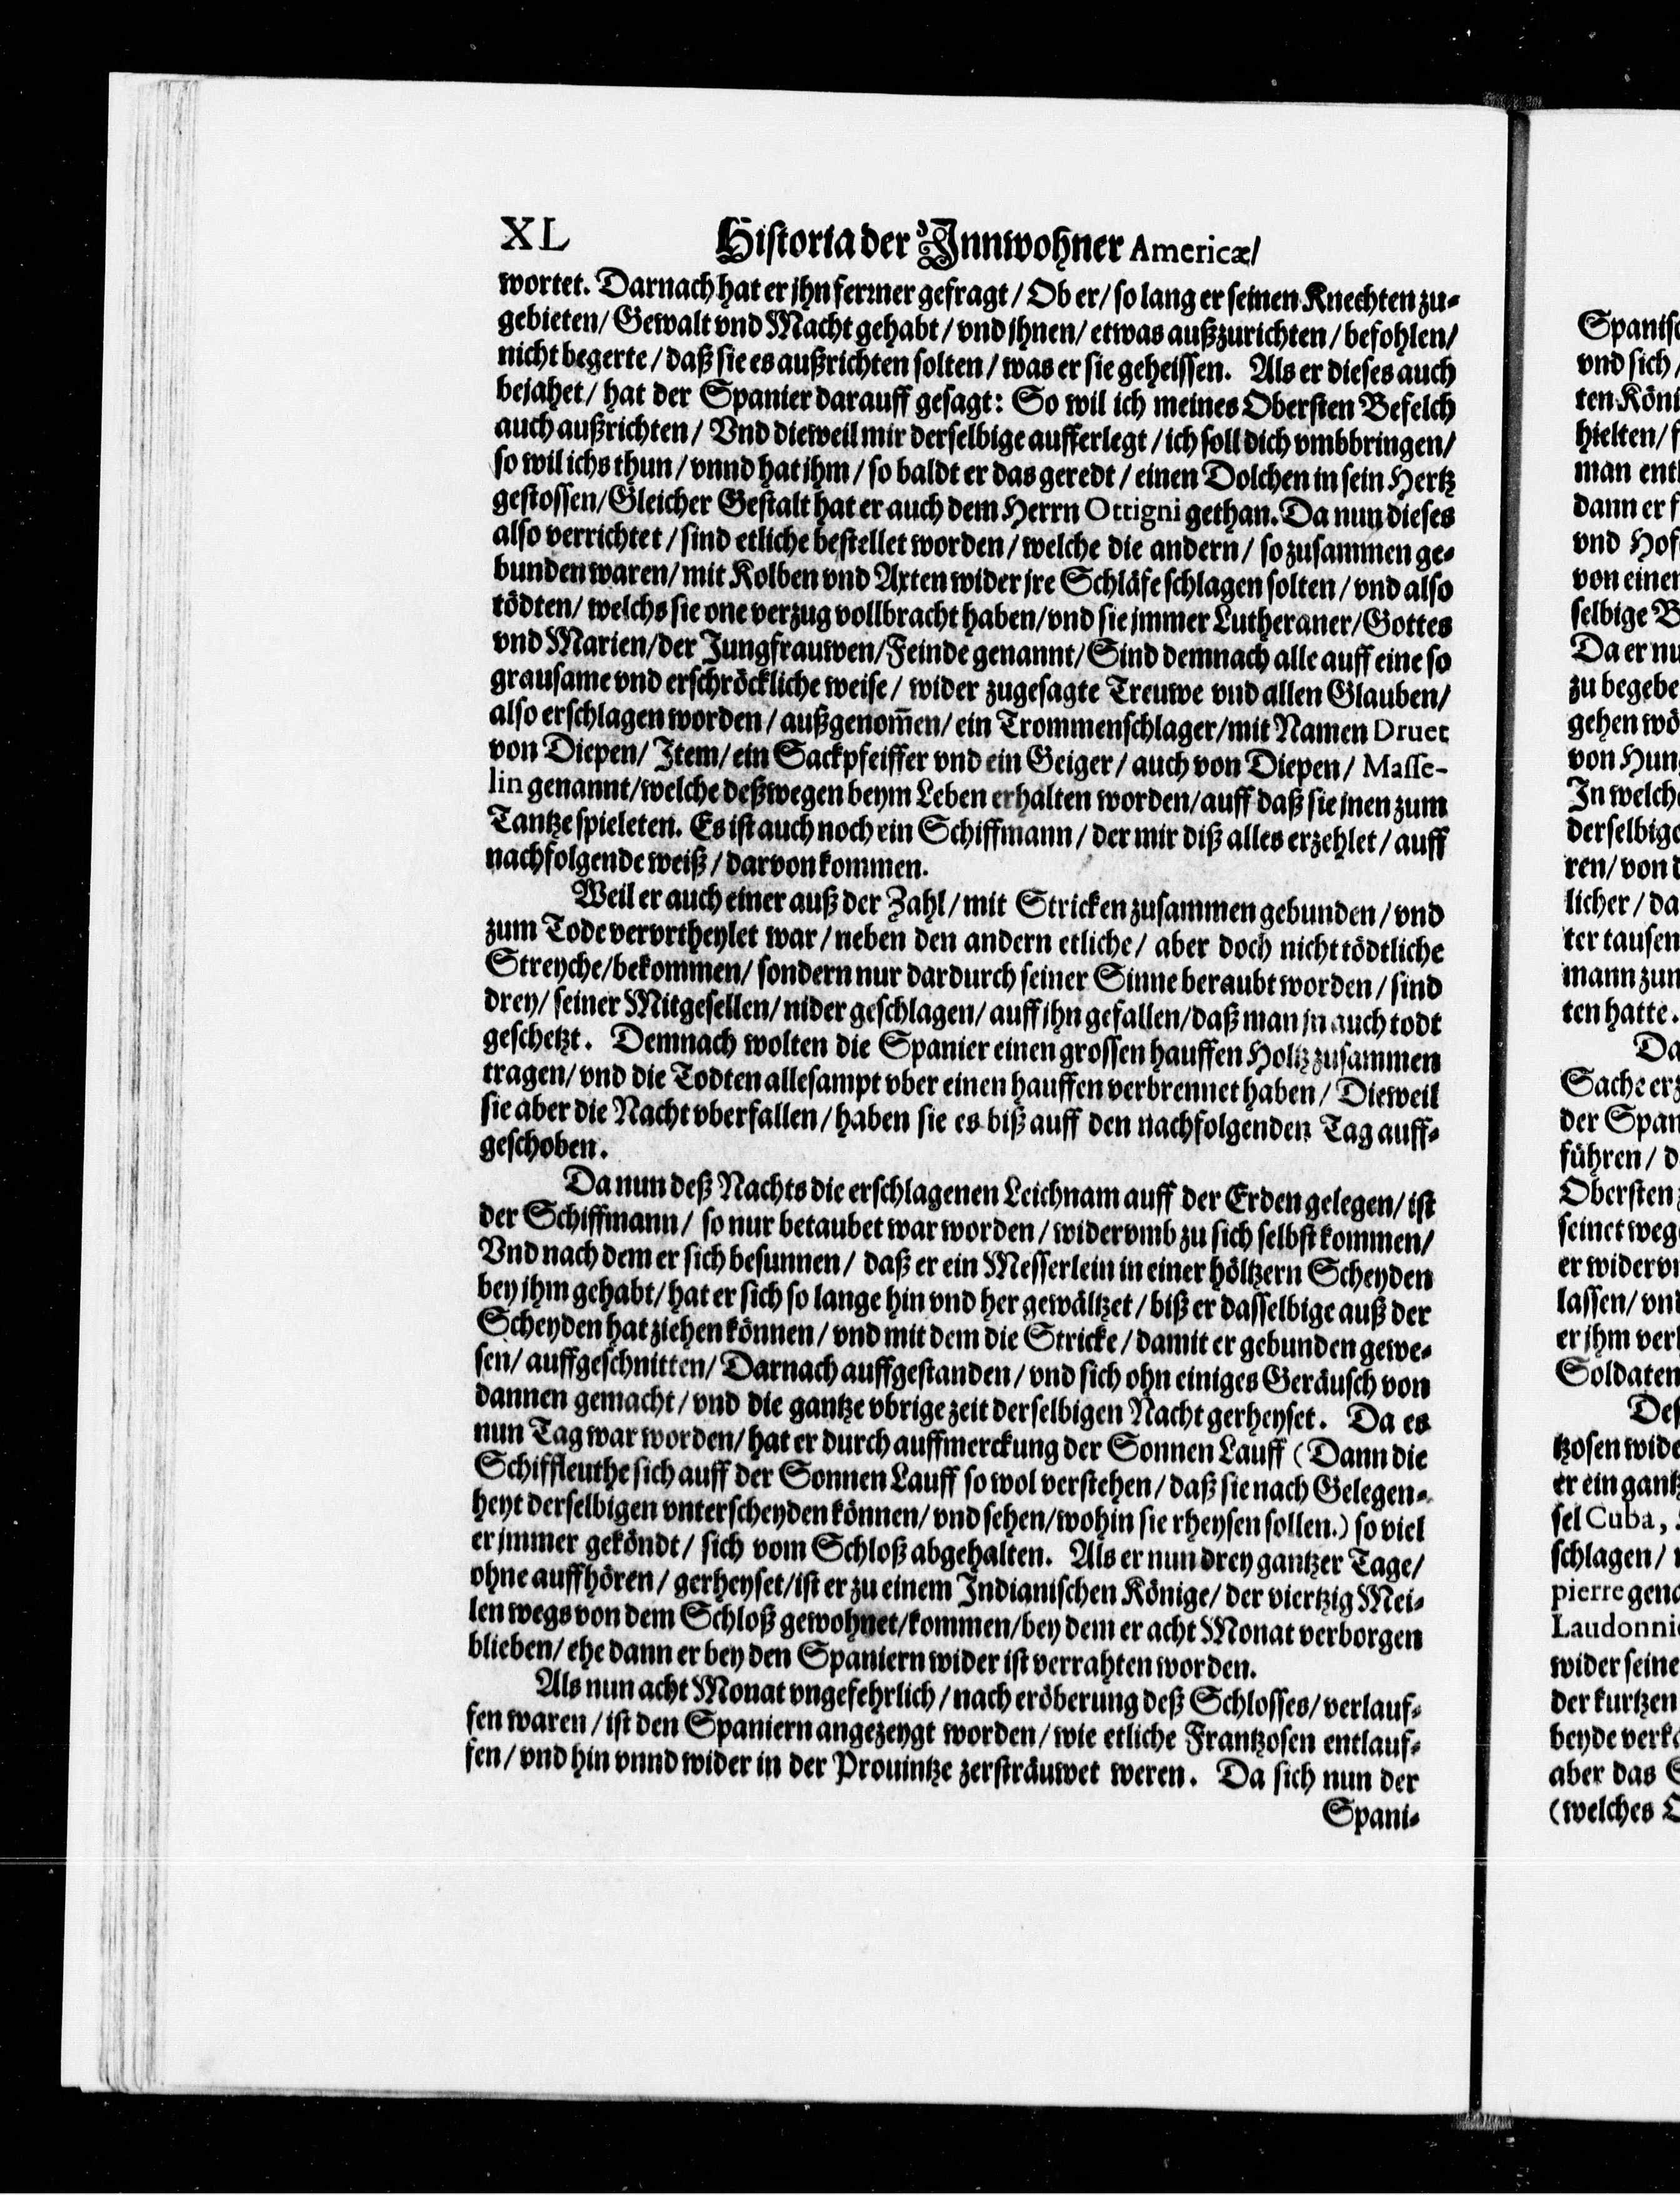 XL Historia der Innwohner Americæ/
wortet. Darnach hat er jhn ferrner gefragt / Ob er / so lang er seinen Knechten zu-
gebieten / Gewalt vnd Macht gehabt / vnd jhnen / etwas außzurichten / befohlen /
nicht begerte / daß sie es außrichten solten / was er sie geheissen. Als er dieses auch
bejahet / hat der Spanier darauff gesagt: So wil ich meines Obersten Befelch
auch außrichten / Vnd dieweil mir derselbige aufferlegt / ich soll dich vmbbringen /
so wil ichs thun / vnnd hat ihm / so baldt er das geredt / einen Dolchen in sein Hertz
gestossen / Gleicher Gestalt hat er auch dem Herrn Ottigni gethan. Da nun dieses
also verrichtet / sind etliche bestellet worden / welche die andern / so zusammen ge-
bunden waren / mit Kolben vnd Axten wider jre Schläfe schlagen solten / vnd also
tödten / welchs sie one verzug vollbracht haben / vnd sie jmmer Lutheraner / Gottes
vnd Marien / der Jungfrauwen / Feinde genannt / Sind demnach alle auff eine so
grausame vnd erschröckliche weise / wider zugesagte Treuwe vnd allen Glauben /
also erschlagen worden / außgenom̃en / ein Trommenschlager / mit Namen Druet
von Diepen / Item / ein Sackpfeiffer vnd ein Geiger / auch von Diepen / Masse-
lin genannt / welche deßwegen beym Leben erhalten worden / auff daß sie jnen zum
Tantze spieleten. Es ist auch noch ein Schiffmann / der mir diß alles erzehlet / auff
nachfolgende weiß / darvon kommen.
Weil er auch einer auß der Zahl / mit Stricken zusammen gebunden / vnd
zum Tode vervrtheylet war / neben den andern etliche / aber doch nicht tödtliche
Streyche / bekommen / sondern nur dardurch seiner Sinne beraubt worden / sind
drey / seiner Mitgesellen / nider geschlagen / auff jhn gefallen / daß man jn auch todt
geschetzt. Demnach wolten die Spanier einen grossen hauffen Holtz zusammen
tragen / vnd die Todten allesampt vber einen hauffen verbrennet haben / Dieweil
sie aber die Nacht vberfallen / haben sie es biß auff den nachfolgenden Tag auff-
geschoben.
Da nun deß Nachts die erschlagenen Leichnam auff der Erden gelegen / ist
der Schiffmann / so nur betaubet war worden / widervmb zu sich selbst kommen /
Vnd nach dem er sich besunnen / daß er ein Messerlein in einer höltzern Scheyden
bey jhm gehabt / hat er sich so lange hin vnd her gewältzet / biß er dasselbige auß der
Scheyden hat ziehen können / vnd mit dem die Stricke / damit er gebunden gewe-
sen / auffgeschnitten / Darnach auffgestanden / vnd sich ohn einiges Geräusch von
dannen gemacht / vnd die gantze vbrige zeit derselbigen Nacht gerheyset. Da es
nun Tag war worden / hat er durch auffmerckung der Sonnen Lauff (Dann die
Schiffleuthe sich auff der Sonnen Lauff so wol verstehen / daß sie nach Gelegen-
heyt derselbigen vnterscheyden können / vnd sehen / wohin sie rheysen sollen.) so viel
er jmmer geköndt / sich vom Schloß abgehalten. Als er nun drey gantzer Tage /
ohne auffhören / gerheyset / ist er zu einem Indianischen Könige / der viertzig Mei-
len wegs von dem Schloß gewohnet / kommen / bey dem er acht Monat verborgen
blieben / ehe dann er bey den Spaniern wider ist verrahten worden.
Als nun acht Monat vngefehrlich / nach eröberung deß Schlosses / verlauf-
fen waren / ist den Spaniern angezeygt worden / wie etliche Frantzosen entlauf-
fen / vnd hin vnnd wider in der Prouintze zersträuwet weren. Da sich nun der
Spani-
vnd sich /
ten Köni
hielten /
dann er
vnd Hof
von einer
selbige
Da er nu
zu begebe
gehen wö
von Hun
In welch
derselbige
ren / von
licher / da
ter tausen
mann zum
ten hatte.
Da
Sache erz
der Span
führen / d
Obersten
seinet weg
er widerv
lassen / vnd
er jhm ver
Soldaten
Des
tzosen wide
er ein gantz
sel Cuba,
schlagen /
pierre gena
Laudonnie
wider seine
der kurtzen
beyde verk
aber das
(welches